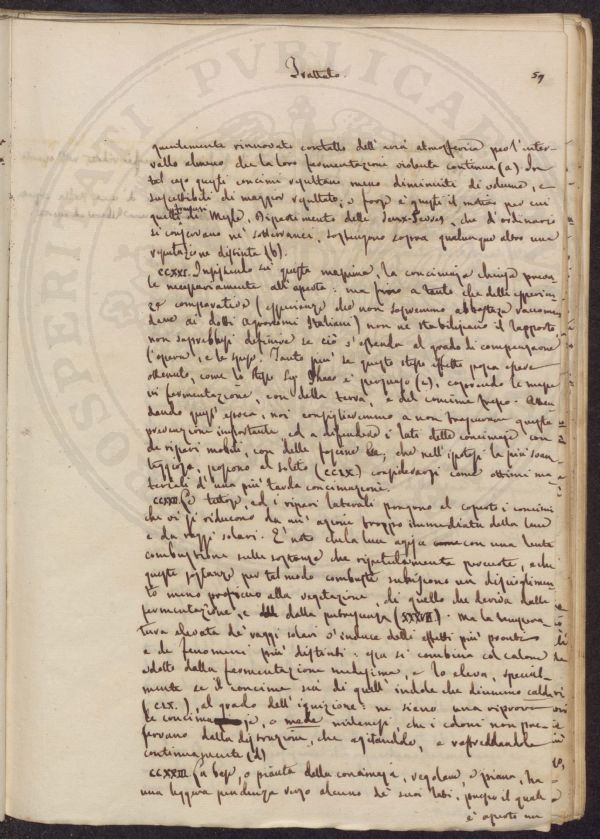 Trattato. 59
quentemente rinnovato contatto dell'aria atmosferica per l'inter-
vallo almeno che la loro fermentazione violenta continua (a). In
tal caso questi concimi risultano meno diminuiti di volume, e
suscettibili di maggior risultato; e forse è questo il motivo per cui
quelli di Mesle, Dipartimento delle Deux-Sevres, che d'ordinario
si conservano ne' sotterranei, sostengono sopra qualunque altro una
riputazione distinta (b).
CCXXI. Insistendo su questa massima, la concimaja chiusa prevale
necessariamente all'aperta: ma fino a tanto che delle esperien-
ze comparative (esperienze che non sapremmo abbastanza raccoman-
dare ai dotti Agronomi Italiani) non ne stabiliscano il rapporto,
non saprebbesi definire se ciò s'estenda al grado di compensarne
l'opera, e la spesa. Tanto più se questo stesso effetto possa essere
ottenuto, come lo stesso Sig. è persuaso (c), coprendo le masse
in fermentazione, con della terra, e del concime stesso. Atten-
dendo quest'epoca, noi consiglieremo a non trascurare questa
precauzione importante, ed a difendere i lati delle concimaje con
de' ripari mobili, con delle fascine &c, che nell'ipotesi la più svan-
taggiosa, possono al solito (CCLX) considerarsi come ottimi ma-
teriali d'una più tarda concimazione.
CCXXII. Le tettoje, ed i ripari laterali pongono al coperto i concimi
che vi si riducono da un'azione troppo immediata della luce
e da' raggi solari. È noto che la luce agisce con una lenta
combustione sulle sostanze che ripetutamente percuote, e che
queste sostanze per tal modo combuste subiscono un discioglimen-
to meno proficuo alla vegetazione, di quello che deriva dalla
fermentazione, e dalla putrescenza (XXXVII). Ma la tempera-
tura elevata de' raggi solari v'induce delli effetti più pronti
e de' fenomeni più distinti: essa si combina col calore
addotto dalla fermentazione medesima, e lo eleva, special-
mente se il concime sia di quell'indole che dicemmo calda
(CLX.), al grado dell'ignizione: ne sieno una riprova
le concimaje, o mede milanesi, che i coloni non pre-
servano dalla distruzione, che agitandole, e raffreddandole
continuamente (d)
CCXXIII. La base, o pianta della concimaja, vogliam, piana, ha
una leggera pendenza verso alcuno de' suoi lati, presso il quale
è aperto un